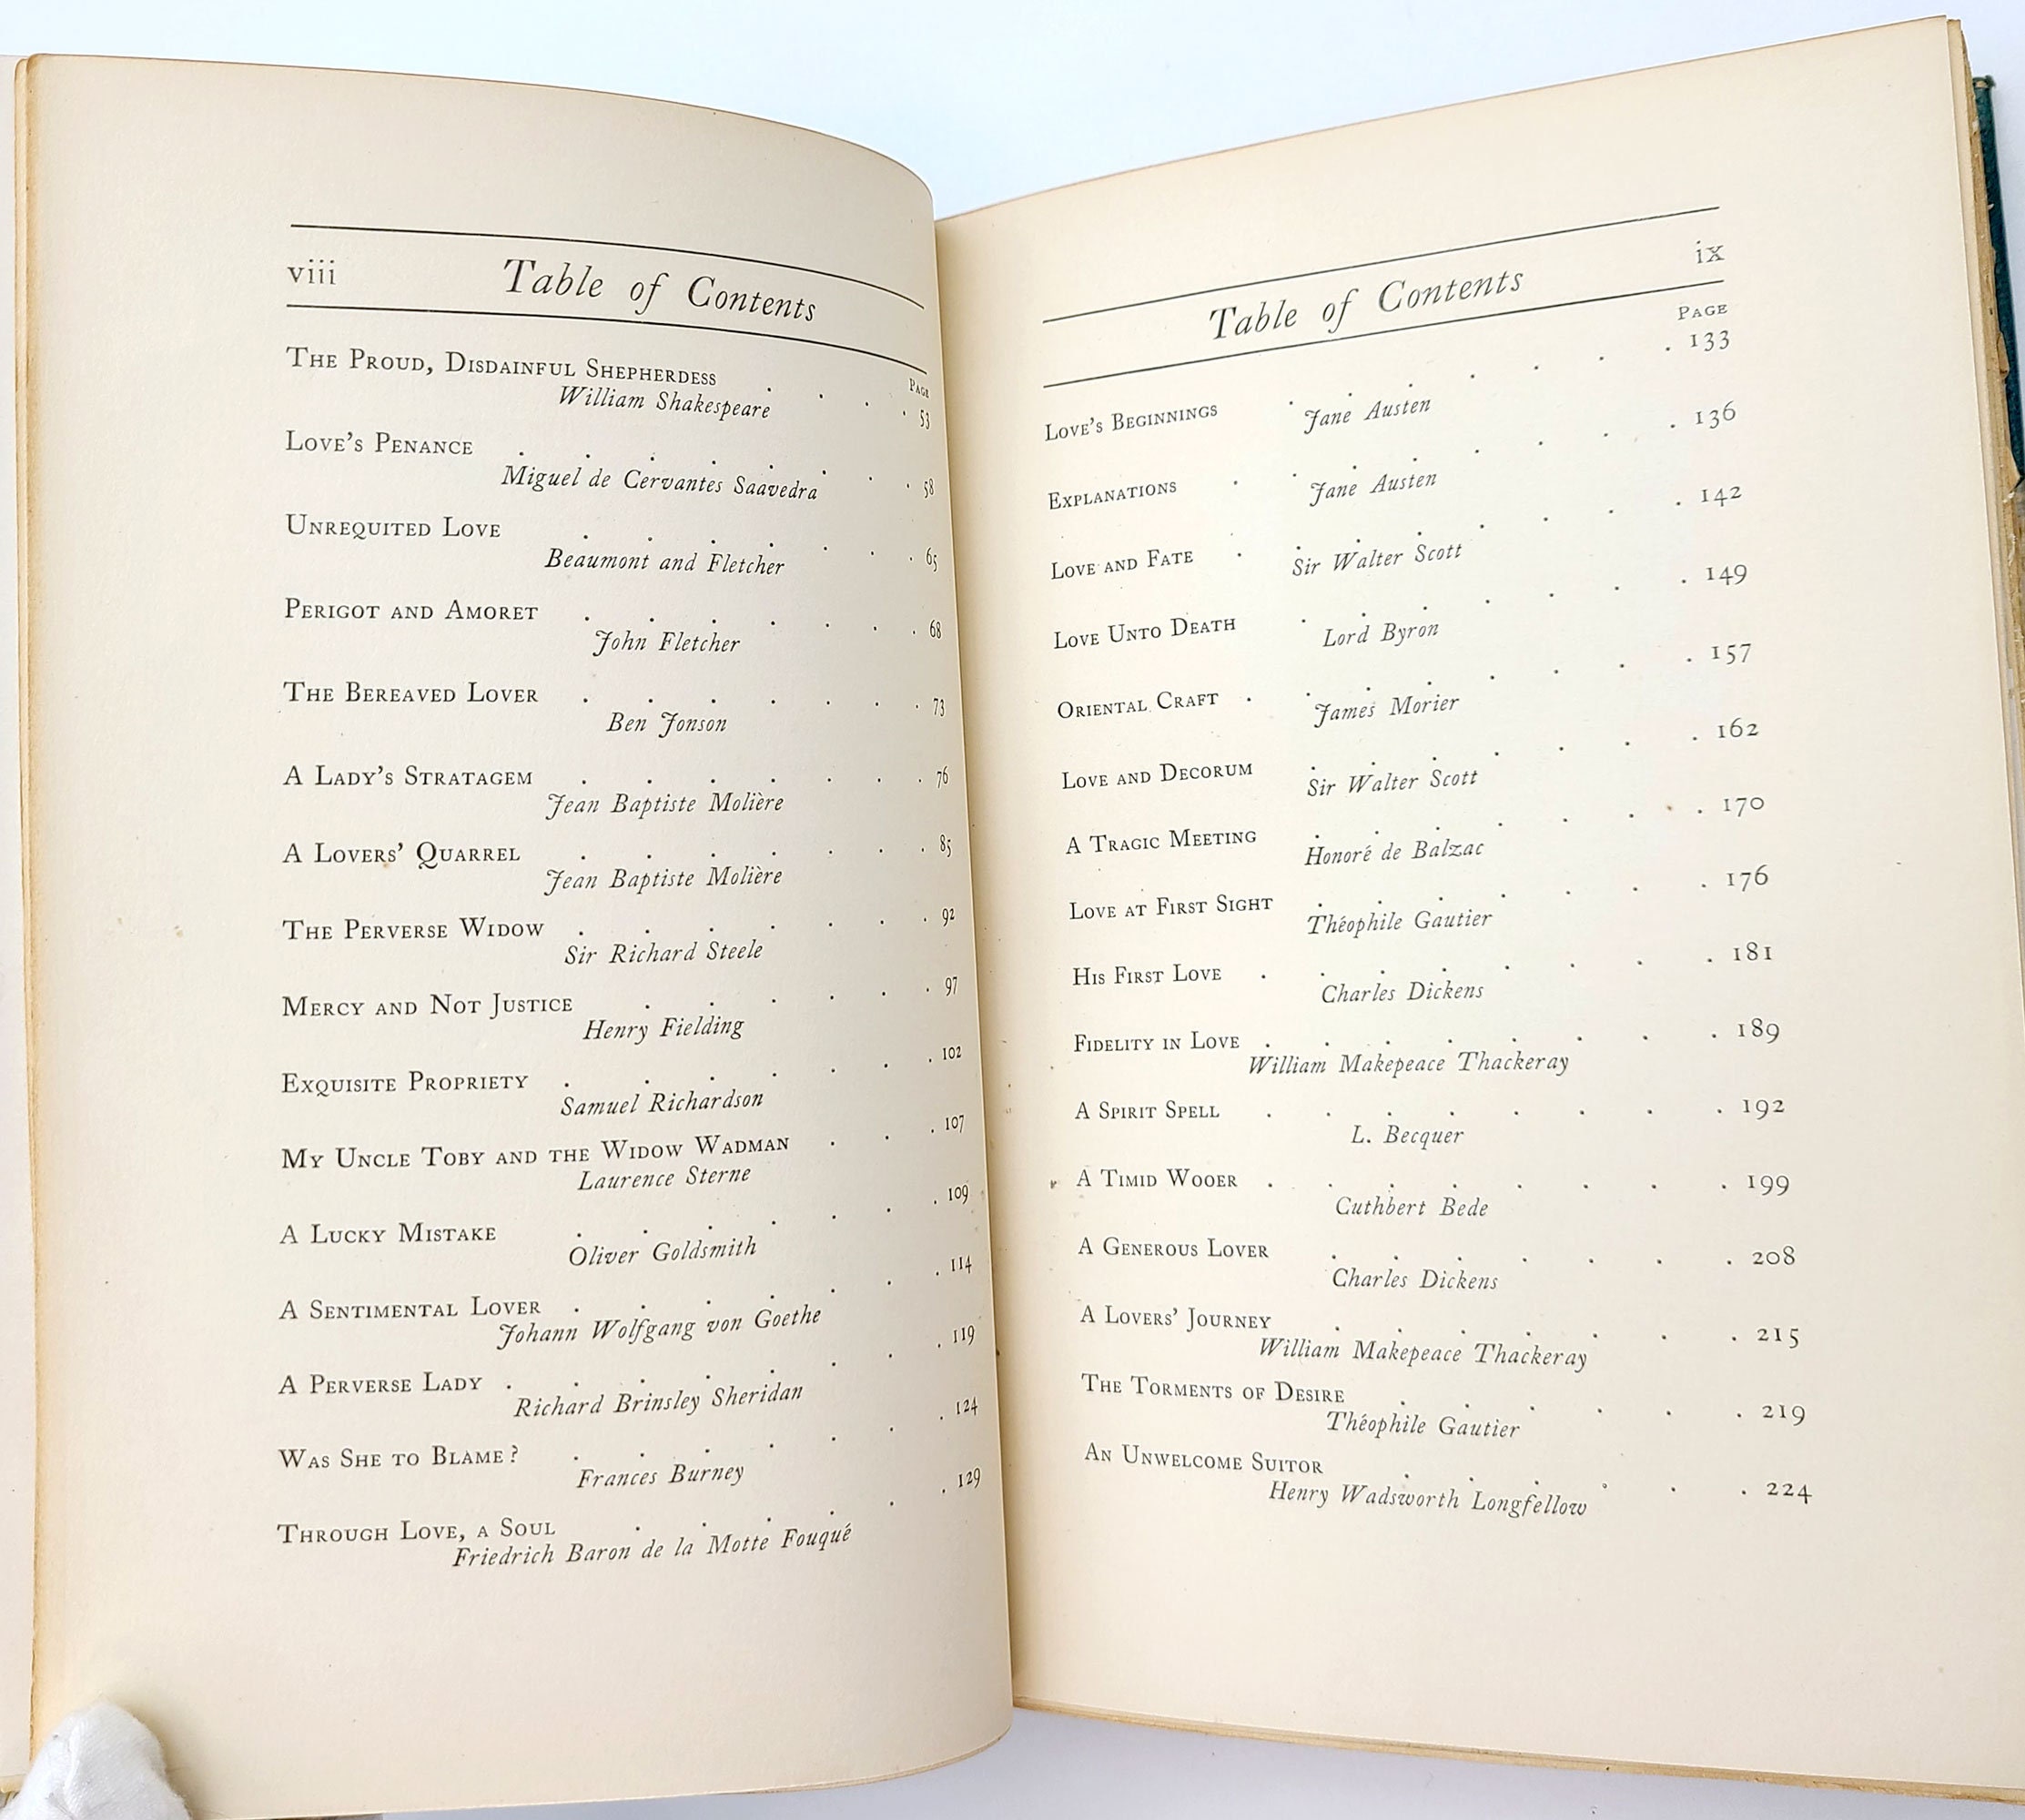 viii Table of Contents
Page
The Proud, Disdainful Shepherdess . . . . 53
William Shakespeare
Love's Penance . . . . . . . . 58
Miguel de Cervantes Saavedra
Unrequited Love . . . . . . . 65
Beaumont and Fletcher
Perigot and Amoret . . . . . . . 68
John Fletcher
The Bereaved Lover . . . . . . . 73
Ben Jonson
A Lady's Stratagem . . . . . . . 76
Jean Baptiste Molière
A Lovers' Quarrel . . . . . . . 85
Jean Baptiste Molière
The Perverse Widow . . . . . . . 92
Sir Richard Steele
Mercy and Not Justice . . . . . . 97
Henry Fielding
Exquisite Propriety . . . . . . . 102
Samuel Richardson
My Uncle Toby and the Widow Wadman . . . 107
Laurence Sterne
A Lucky Mistake . . . . . . . 109
Oliver Goldsmith
A Sentimental Lover . . . . . . . 114
Johann Wolfgang von Goethe
A Perverse Lady . . . . . . . . 119
Richard Brinsley Sheridan
Was She to Blame? . . . . . . . 124
Frances Burney
Through Love, a Soul . . . . . . 129
Friedrich Baron de la Motte Fouqué
Table of Contents ix
Page
Love's Beginnings . . . . . . . 133
Jane Austen
Explanations . . . . . . . . 136
Jane Austen
Love and Fate . . . . . . . . 142
Sir Walter Scott
Love Unto Death . . . . . . . 149
Lord Byron
Oriental Craft . . . . . . . . 157
James Morier
Love and Decorum . . . . . . . 162
Sir Walter Scott
A Tragic Meeting . . . . . . . 170
Honoré de Balzac
Love at First Sight . . . . . . . 176
Théophile Gautier
His First Love . . . . . . . . 181
Charles Dickens
Fidelity in Love . . . . . . . . 189
William Makepeace Thackeray
A Spirit Spell . . . . . . . . 192
L. Becquer
A Timid Wooer . . . . . . . . 199
Cuthbert Bede
A Generous Lover . . . . . . . 208
Charles Dickens
A Lovers' Journey . . . . . . . 215
William Makepeace Thackeray
The Torments of Desire . . . . . . 219
Théophile Gautier
An Unwelcome Suitor . . . . . . 224
Henry Wadsworth Longfellow